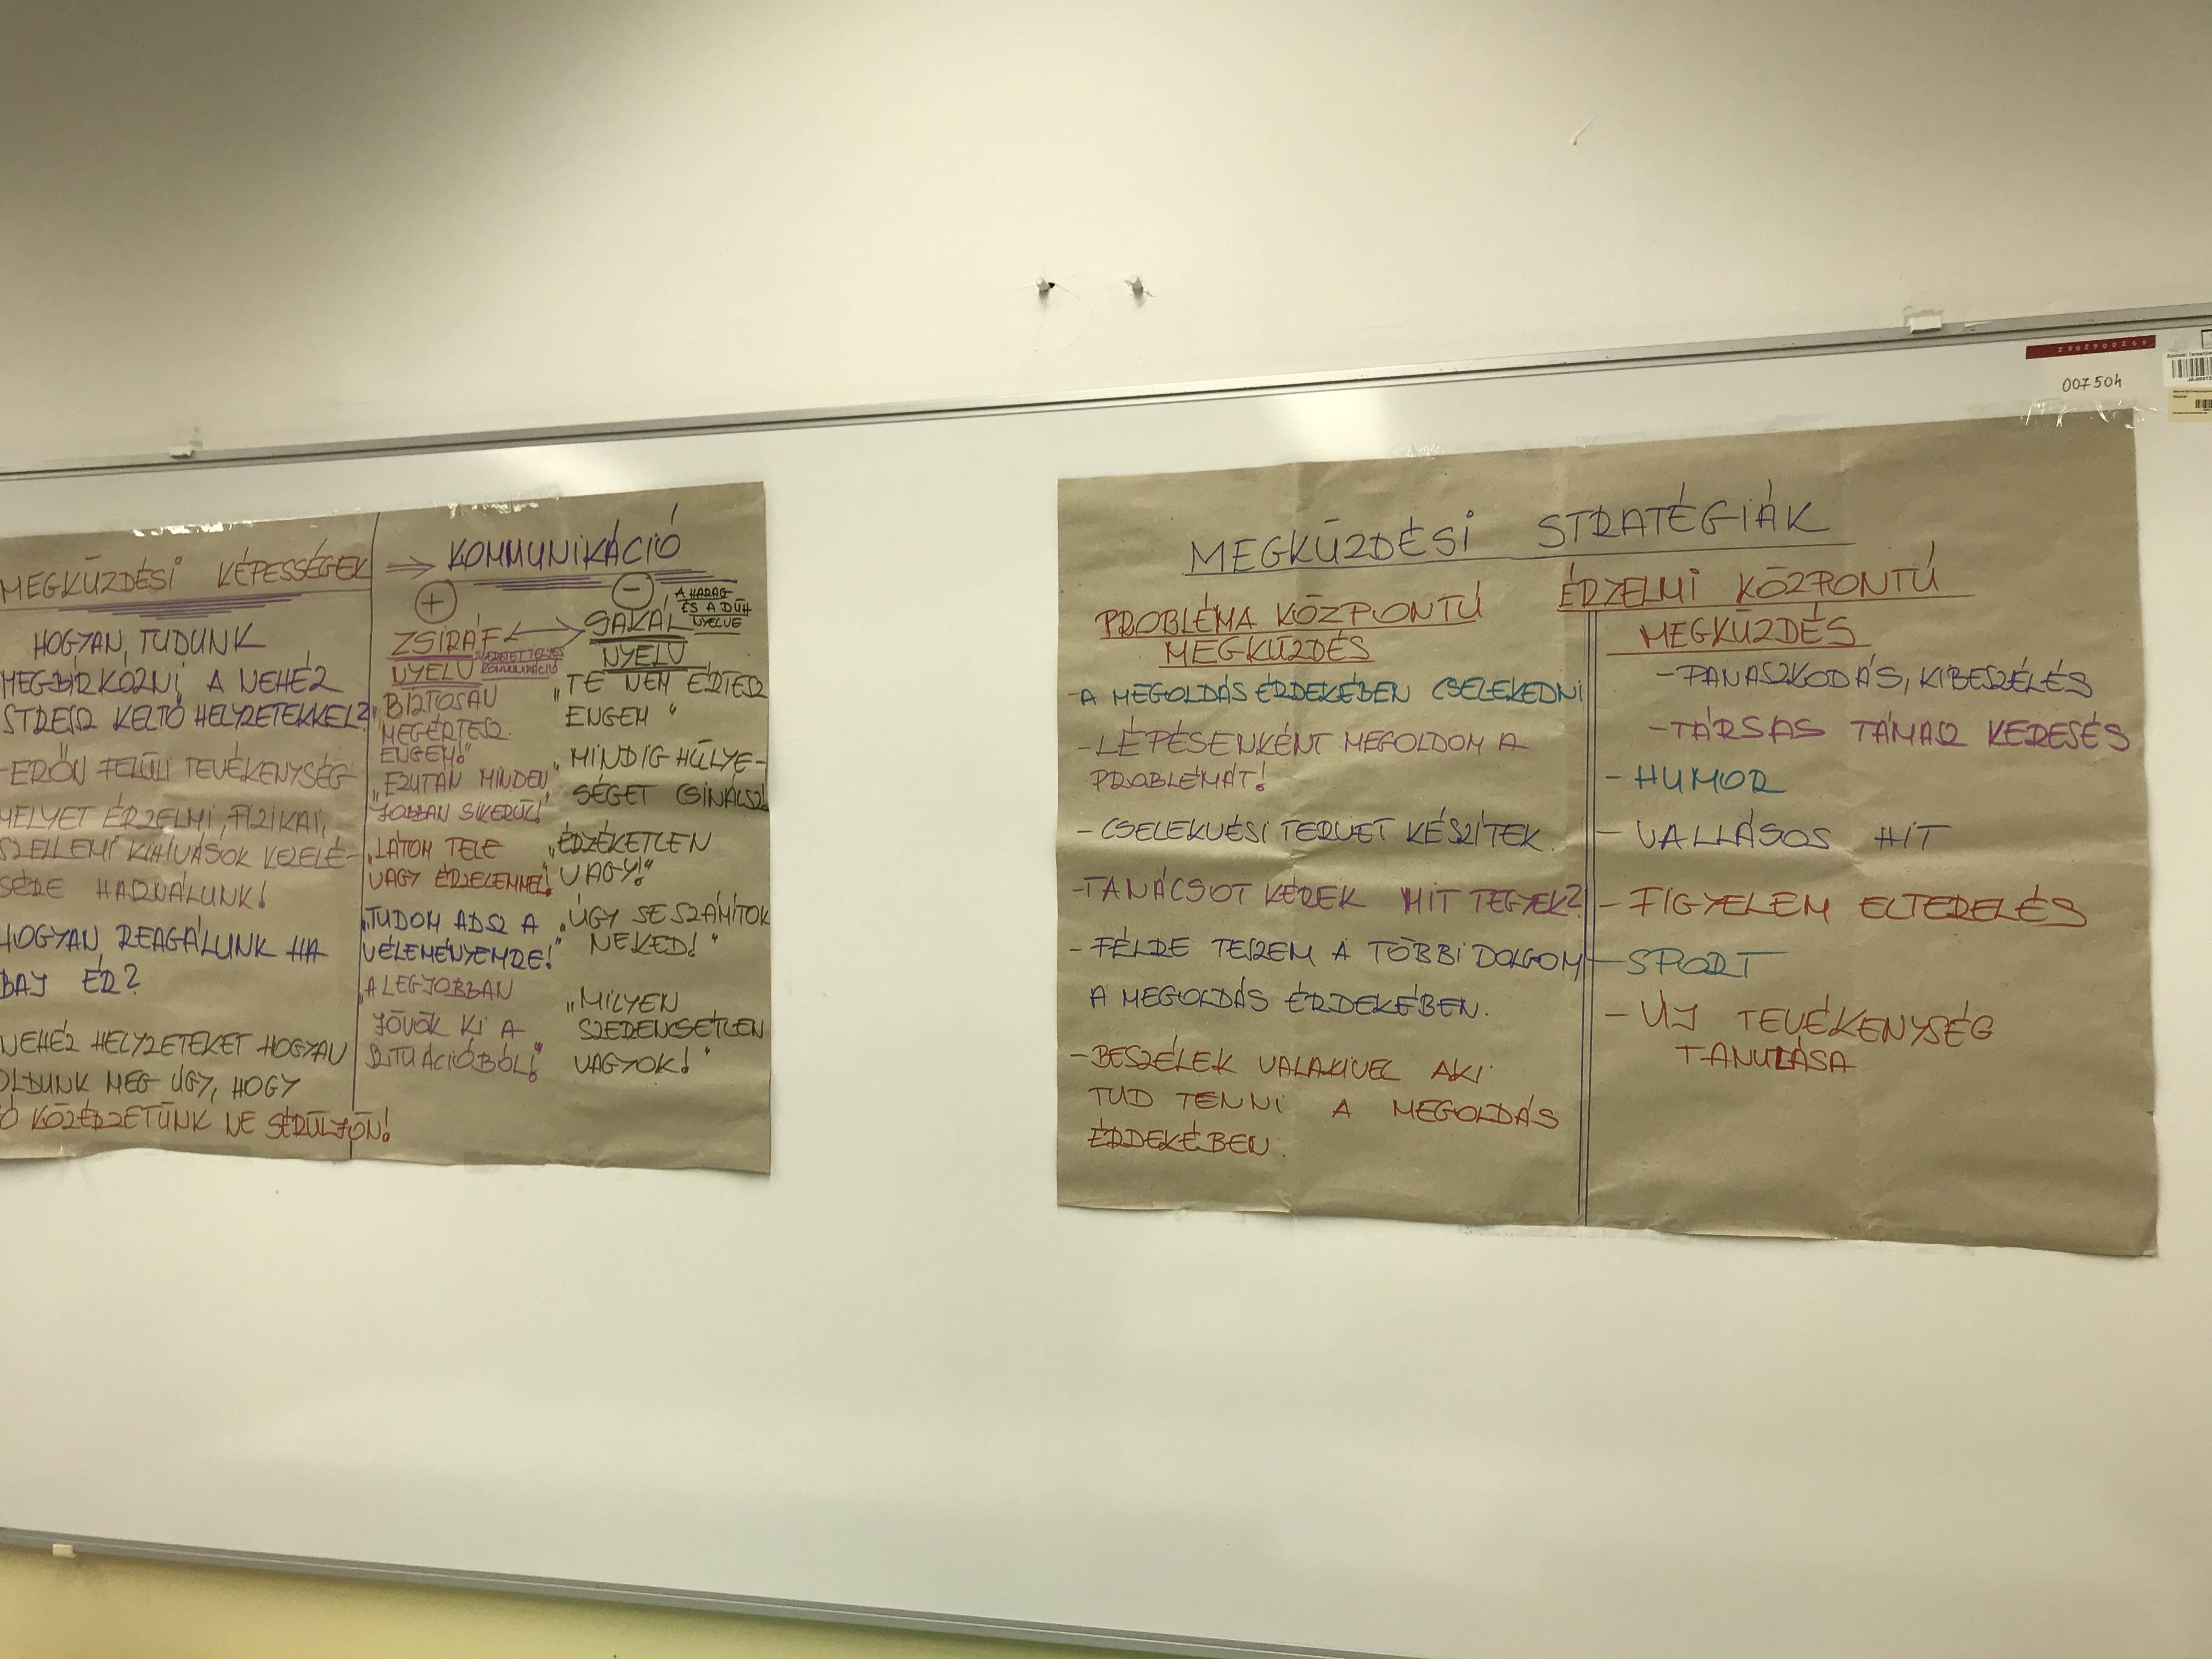 MEGKÜZDÉSI KÉPESSÉGEK
HOGYAN, TUDUNK
MEGBÍRKÓZNI A NEHÉZ
STRESSZ KELTŐ HELYZETEKKEL?
-ERŐN FELÜLI TEVÉKENYSÉG
MELYET ÉRZELMI, FIZIKAI,
SZELLEMI KIHÍVÁSOK KEZELÉ-
SÉRE HASZNÁLUNK!
HOGYAN REAGÁLUNK HA
BAJ ÉR?
NEHÉZ HELYZETEKET HOGYAN
OLDUNK MEG ÚGY, HOGY
KÖZÉRZETÜNK NE SÉRÜLJÖN!
⇒ KOMMUNIKÁCIÓ
+
ZSIRÁF
NYELV
SZERETETTELJES
KOMMUNIKÁCIÓ
„BIZTOSAN
MEGÉRTESZ
ENGEM!"
„EZUTÁN MINDEN
JOBBAN SIKERÜL!"
„LÁTOM TELE
VAGY ÉRZELEMMEL!
„TUDOM ADSZ A
VÉLEMÉNYEMRE!"
„A LEGJOBBAN
JÖVÖK KI A
SZITUÁCIÓBÓL!"
−
A HARAG
ÉS A DÜH
NYELVE
SAKÁL
NYELV
„TE NEM ÉRTESZ
ENGEM"
„MINDIG HÜLYE-
SÉGET CSINÁLSZ!
„ÉRZÉKETLEN
VAGY!"
„ÚGY SE SZÁMÍTOK
NEKED!"
„MILYEN
SZERENCSÉTLEN
VAGYOK!"
007504
MEGKÜZDÉSI STRATÉGIÁK
PROBLÉMA KÖZPONTÚ
MEGKÜZDÉS
-A MEGOLDÁS ÉRDEKÉBEN CSELEKEDNI
-LÉPÉSENKÉNT MEGOLDOM A
PROBLÉMÁT!
-CSELEKVÉSI TERVET KÉSZÍTEK.
-TANÁCSOT KÉREK MIT TEGYEK?
-FÉLRE TESZEM A TÖBBI DOLGOM
A MEGOLDÁS ÉRDEKÉBEN.
-BESZÉLEK VALAKIVEL AKI
TUD TENNI A MEGOLDÁS
ÉRDEKÉBEN.
ÉRZELMI KÖZPONTÚ
MEGKÜZDÉS
-PANASZKODÁS, KIBESZÉLÉS
-TÁRSAS TÁMASZ KERESÉS
-HUMOR
-VALLÁSOS HIT
-FIGYELEM ELTERELÉS
-SPORT
-ÚJ TEVÉKENYSÉG
TANULÁSA